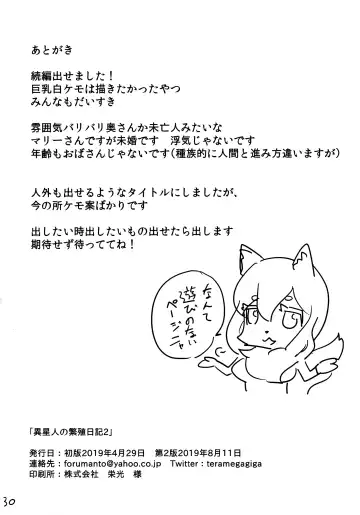 あとがき
続編出せました!
巨乳白ケモは描きたかったやつ
みんなもだいすき
雰囲気バリバリ奥さんか未亡人みたいな
マリーさんですが未婚です　浮気じゃないです
年齢もおばさんじゃないです(種族的に人間と進み方違いますが)
人外も出せるようなタイトルにしましたが、
今の所ケモ案ばかりです
出したい時出したいもの出せたら出します
期待せず待っててね!
なんて
遊びのない
ページニャ
「異星人の繁殖日記2」
発行日:初版2019年4月29日　第2版2019年8月11日
連絡先:forumanto@yahoo.co.jp　Twitter:teramegagiga
印刷所:株式会社　栄光　様
30